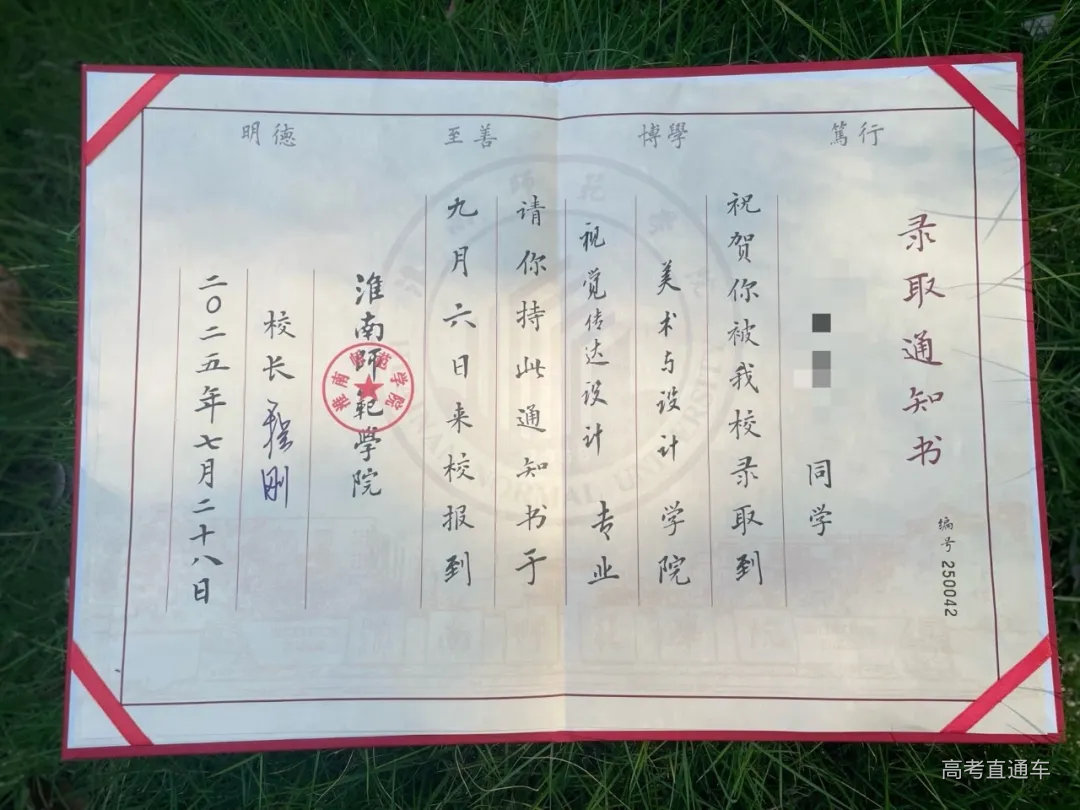 篤行
博學
至善
明德
录取通知书
编号 250042
同学
祝贺你被我校录取到
美术与设计 学院
视觉传达设计 专业
请你持此通知书于
九月六日来校报到
淮南師範學院
淮南師範學院
校长 程刚
二〇二五年七月二十八日
NORMAL UNIVERSITY
高考直通车